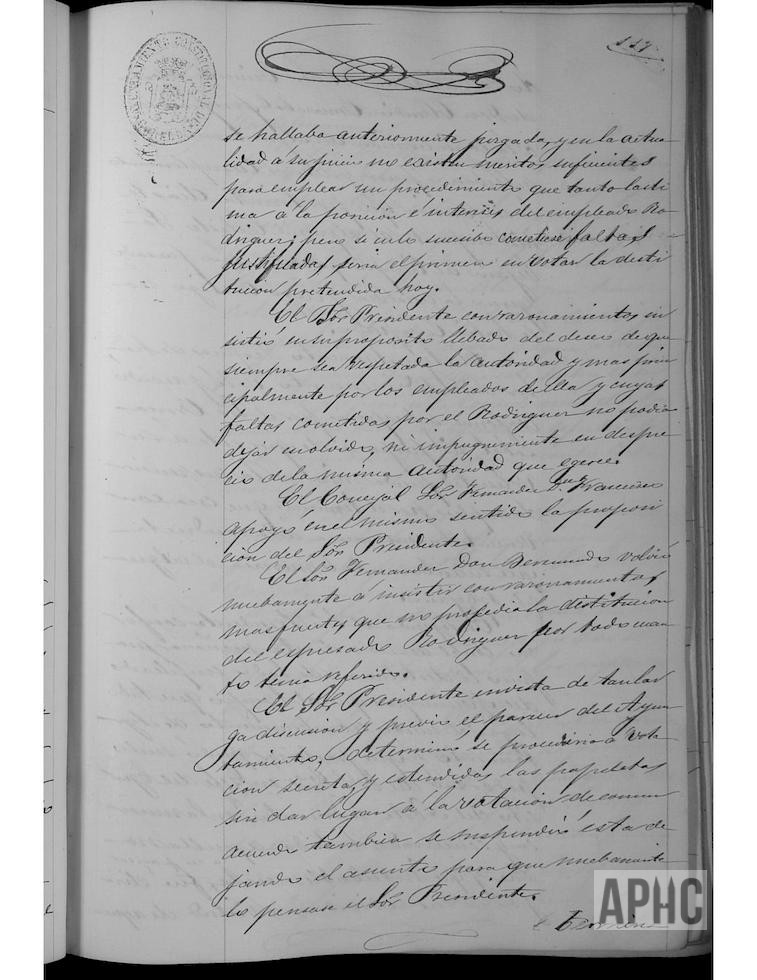 117
AYUNTAMIENTO CONSTITUCIONAL
se hallaba anteriormente purgada, y en la actua
lidad á su juicio no existen meritos suficientes
para emplear un procedimiento que tanto lasti
ma á la posicion é intereses del empleado Ro
driguez; pero si en lo sucesibo cometiese faltas
justificadas seria el primero en votar la desti
tucion pretendida hoy.
El Sor Presidente con razonamientos in
sistió en su proposito llebado del deseo de que
siempre sea respetada la autoridad y mas prin
cipalmente por los empleados de ella y cuyas
faltas cometidas por el Rodriguez no podia
dejar en olvido, ni impugnemente en despre
cio de la misma autoridad que egerce.
El Concejal Sor Fernandez Don Francisco
apoyó en el mismo sentido la proposi
cion del Sor Presidente.
El Sor Fernandez Don Bermundo volvió
nuebamente á insistir con razonamientos
mas fuertes que no procedia la distitucion
del espresado Rodriguez por todo cuan
to tenia referido.
El Sor Presidente en vista de tan lar
ga discusion y previo el parecer del Ayun
tamiento, determinó se procediera á vota
cion secreta, y estendidas las papeletas
sin dar lugar á la votacion de comun
acuerdo tambien se suspendió ésta de
jando el asunto para que nuebamente
lo pensase el Sor Presidente.
APHC